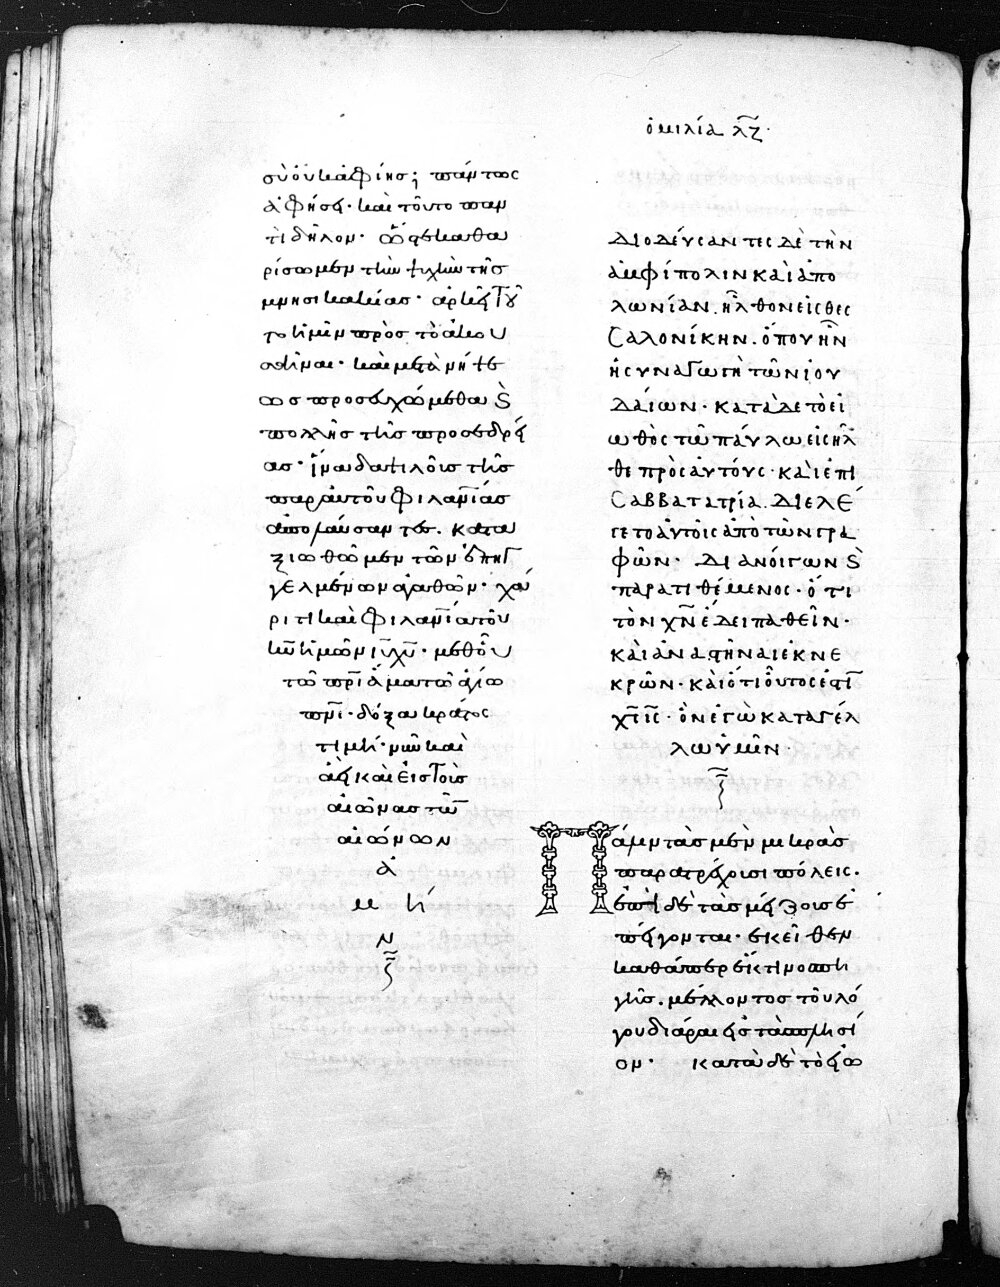 σὺ οὐκ ἀφίης; πάντως
ἀφήσει· καὶ τοῦτο παν
τὶ δῆλον· ὥστε καθα
ρίσωμεν τὴν ψυχὴν τῆς
μνησικακίας· ἀρκεῖ τοῦ
το ἡμῖν πρὸς τὸ ἀκου
σθῆναι· καὶ μετὰ νήψε
ως προσευχώμεθα κ̀
πολλῆς τῆς προσεδρεί
ας· ἵνα δαψιλοῦς τῆς
παρ' αὐτοῦ φιλαν̅ίας
ἀπολαύσαντες. κατα
ξιωθῶμεν τῶν ἐπηγ
γελμένων ἀγαθῶν· χά
ριτι καὶ φιλαν̅ία τοῦ
κ̅υ̅ ἡμῶν ι̅υ̅ χ̅υ̅· μεθ' οὗ
τῶ π̅ρ̅ι̅ ἅμα τῶ ἁγίω
π̅ν̅ι̅· δόξα κράτος
τιμὴ· νῦν καὶ
ἀεὶ καὶ εἰς τοὺς
αἰῶνας τῶν
αἰώνων
ἀ
μ ή
ν
ὁμιλία λ̅ζ̅·
Διοδεύσαντες δὲ τὴν
ἀμφίπολιν καὶ ἀπο
λωνίαν. ἦλθον εἰς θεσ
σαλονίκην. ὅπου ἦν
ἡ συναγωγὴ τῶν ἰου
δαίων· κατὰ δε τὸ εἰ
ωθὸς τῶ παύλω εἰσῆλ
θε πρὸς αὐτούς· καὶ ἐπι
σάββατα τρία. διελέ
γετο αὐτοῖς ἀπὸ τῶν γρα
φῶν· διανοίγων κ̀
παρατιθέμενος· ὅτι
τὸν χ̅ν̅ ἔδει παθεῖν·
καὶ ἀναστῆναι ἐκ νε
κρῶν· καὶ ὅτι οὗτος ἐστὶ
χ̅ς̅ ι̅ς̅· ὃν ἐγὼ καταγγέλ
λω ὑμῖν
Πάλιν τὰς μὲν μικρὰς
παρατρέχουσι πόλεις·
ἐπὶ δὲ τὰς μείζους ἐ
πείγονται· ἐκεῖθεν
καθάπερ ἔκ τινος πη
γῆς. μέλλοντος τοῦ λό
γου διαρρεῖν εἰς τὰς πλησί
ον· κατὰ δὲ τὸ εἰω